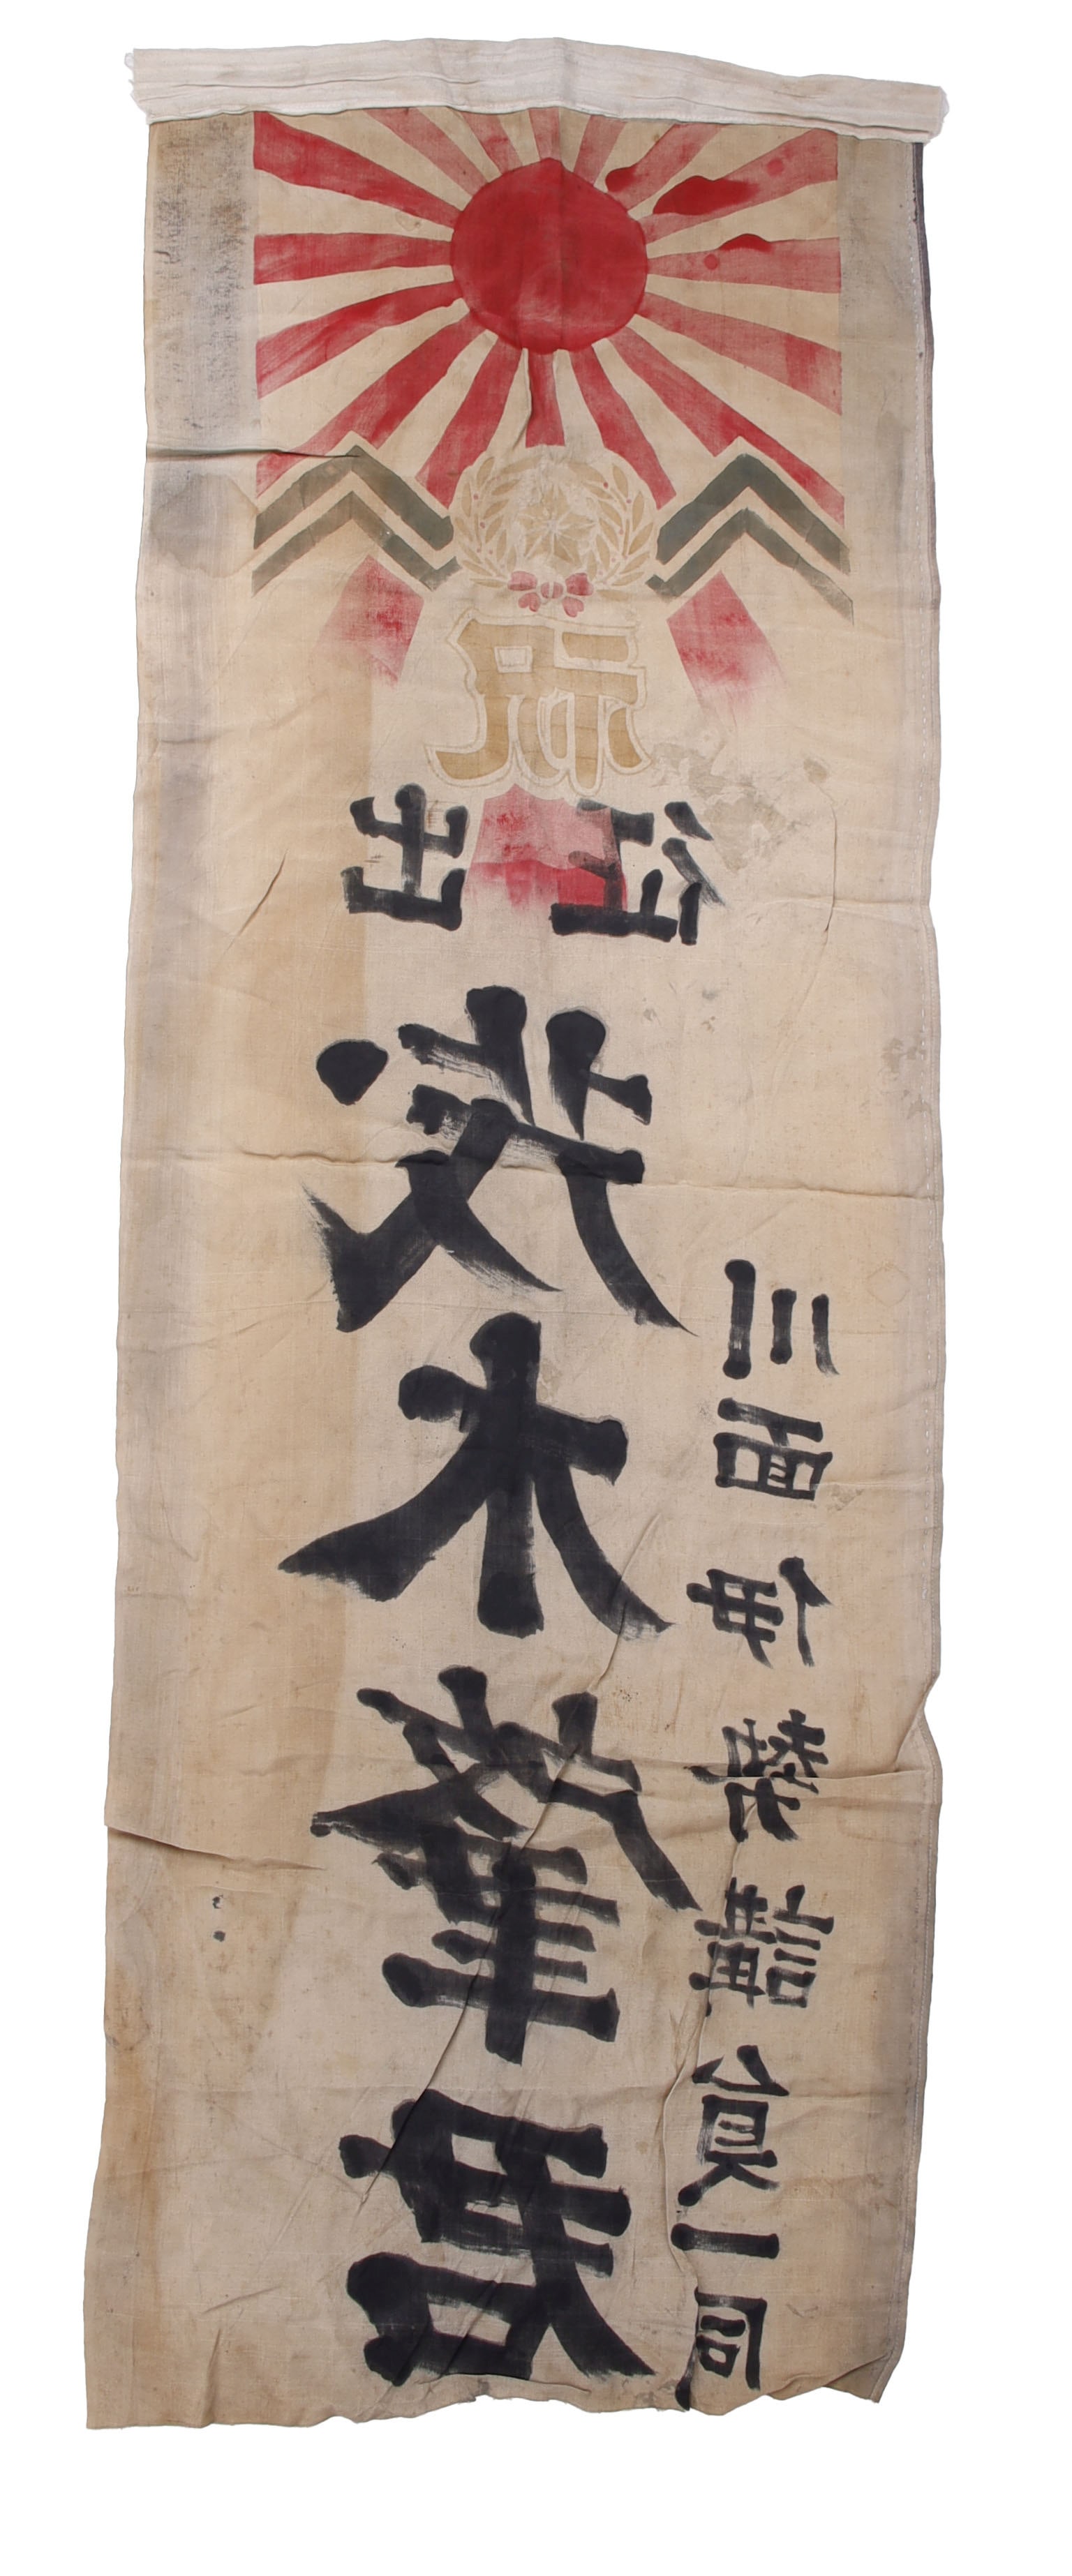 祈
出征
茂木肇君
三面伊勢講員一同